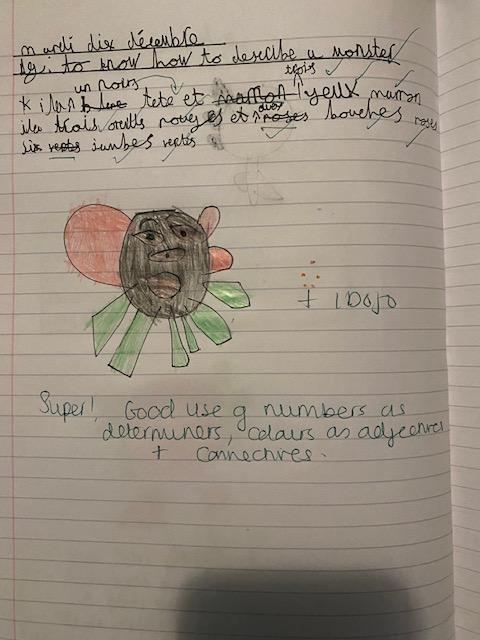 mardi dix décembre
LQ: to know how to describe a monster
un noirs trois
* il a tete et marron yeux marron
il a trois oreills rouges et dix roses bouches roses
six verts jambes vertes
+ 1 Dojo
Super! Good use of numbers as
determiners, colours as adjectives
+ connectives.